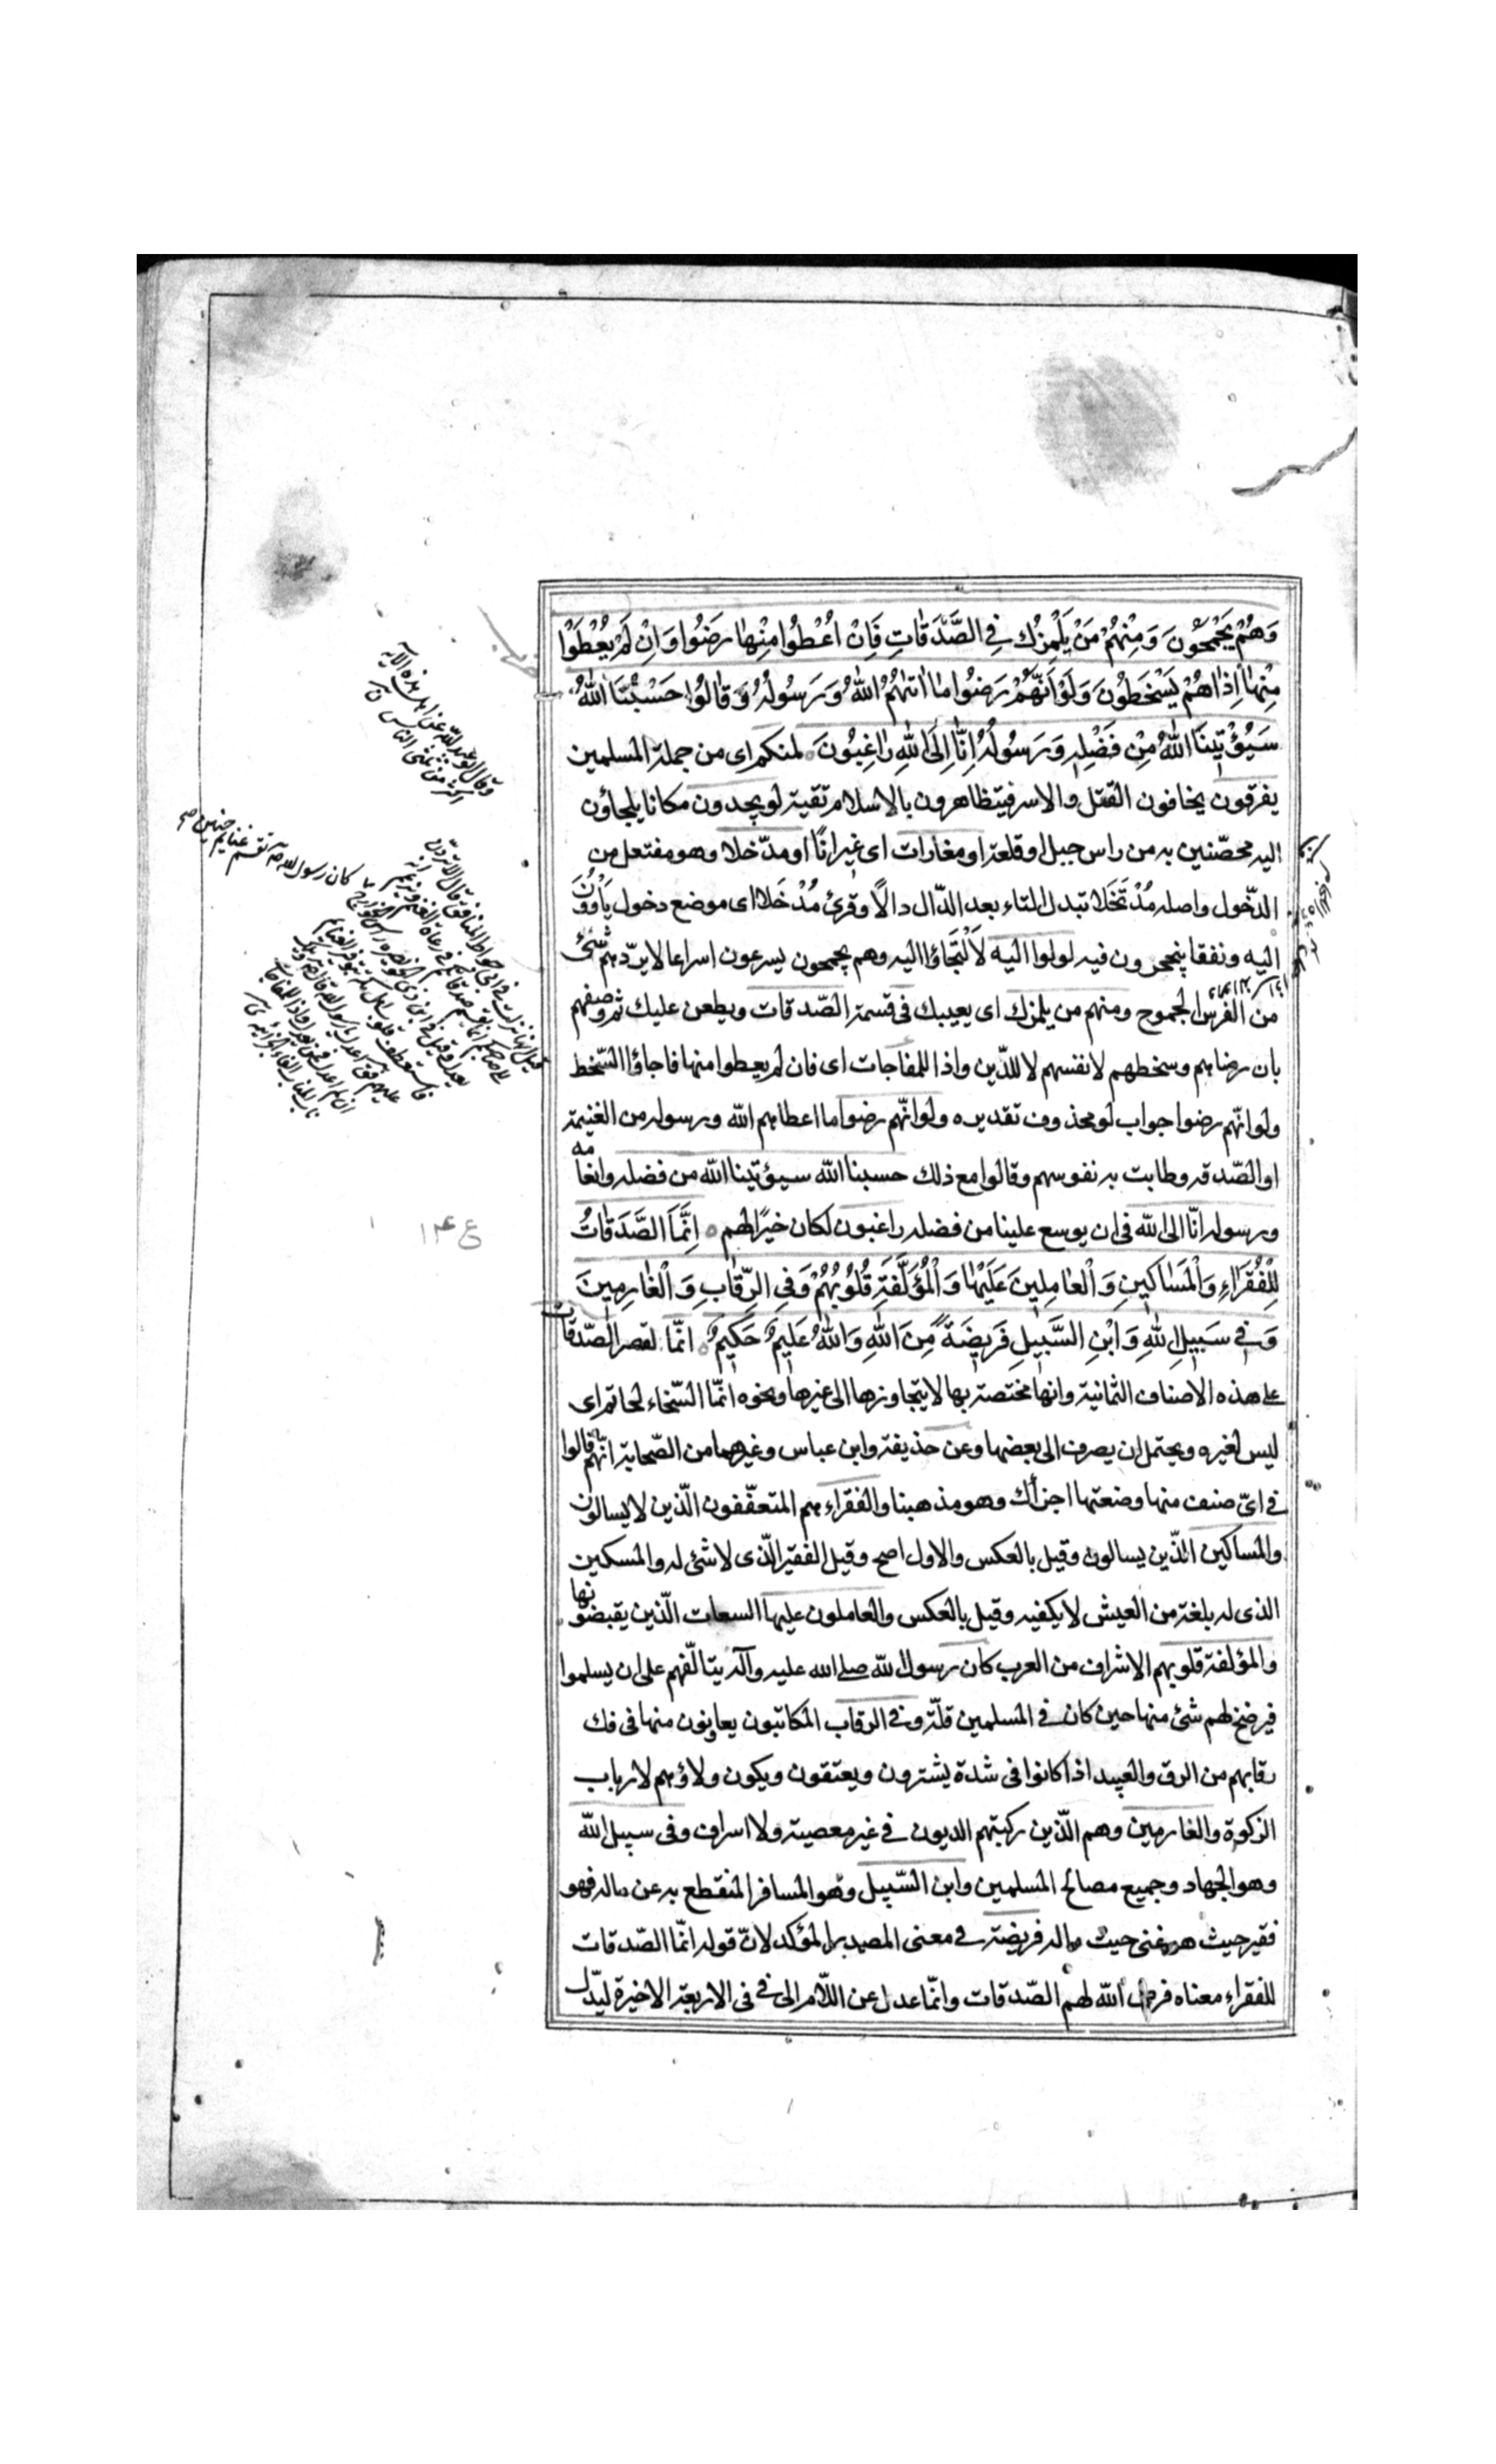 وَهُمْ يَجْمَحُونَ وَمِنْهُمْ مَنْ يَلْمِزُكَ فِي الصَّدَقَاتِ فَاِنْ اُعْطُوا مِنْهَا رَضُوا وَاِنْ لَمْ يُعْطَوْا
مِنْهَا اِذَا هُمْ يَسْخَطُونَ وَلَوْ اَنَّهُمْ رَضُوا مَا اٰتٰهُمُ اللهُ وَرَسُولُهُ وَقَالُوا حَسْبُنَا اللهُ
سَيُؤْتِينَا اللهُ مِنْ فَضْلِهِ وَرَسُولُهُ اِنَّا اِلَى اللهِ رَاغِبُونَ لمنكم اى من جملة المسلمين
يفرقون يخافون القتل والاسر فيتظاهرون بالاسلام تقية لو يجدون مكانا يلجاؤن
اليه محصّنين به من راس جبل او قلعة او مغارات اى غيرانًا او مدّخلا وهو مفتعل من
الدّخول واصله مُدْتَخَلا تبدل التاء بعد الدّال دالًا وقرئ مُدْخَلا اى موضع دخول يَأْوُونَ
اليه ونفقا ينجحرون فيه لولوا اليه لَالْتَجَاؤا اليه وهم يجمحون يسرعون اسراعا لايردّهم شئ
من الفرس الجموح ومنهم من يلمزك اى يعيبك فى قسمة الصّدقات ويطعن عليك ثم وصفهم
بان رضاهم وسخطهم لانفسهم لا للدّين واذا للمفاجات اى فان لم يعطوا منها فاجاؤا السّخط
ولو انّهم رضوا جواب لو محذوف تقديره ولو انّهم رضوا ما اعطاهم الله ورسوله من الغنيمة
او الصّدقه وطابت به نفوسهم وقالوا مع ذلك حسبنا الله سيؤتينا الله من فضله وانعامه
ورسوله انّا الى الله فى ان يوسع علينا من فضله راغبون لكان خيرًا لهم اِنَّمَا الصَّدَقَاتُ
لِلْفُقَرَاءِ وَالْمَسَاكِينِ وَالْعَامِلِينَ عَلَيْهَا وَالْمُؤَلَّفَةِ قُلُوبُهُمْ وَفِي الرِّقَابِ وَالْغَارِمِينَ
وَفِي سَبِيلِ اللهِ وَابْنِ السَّبِيلِ فَرِيضَةً مِنَ اللهِ وَاللهُ عَلِيمٌ حَكِيمٌ انّما لقصر الصّدقات
على هذه الاصناف الثمانية وانها مختصة بها لا يتجاوزها الى غيرها ونحوه انّما السّخاء لحاتم اى
ليس لغيره ويحتمل ان يصرف الى بعضها وعن حذيفة وابن عباس وغيرهما من الصّحابة انّهم قالوا
فى اىّ صنف منها وضعتها اجزأك وهو مذهبنا والفقراء هم المتعفّفون الّذين لا يسالون
والمساكين الّذين يسالون وقيل بالعكس والاول اصح وقيل الفقير الّذى لا شئ له والمسكين
الذى له بلغة من العيش لا يكفيه وقيل بالعكس والعاملون عليها السعات الّذين يقبضونها
والمؤلفة قلوبهم الاشراف من العرب كان رسول الله صلى الله عليه وآله يتالّفهم على ان يسلموا
فيرضخ لهم شئ منها حين كان فى المسلمين قلّة وفى الرقاب المكاتبون يعاونون منها فى فك
رقابهم من الرق والعبيد اذا كانوا فى شدة يشترون ويعتقون ويكون ولاؤهم لارباب
الزكوة والغارمين وهم الّذين ركبتهم الديون فى غير معصية ولا اسراف وفى سبيل الله
وهو الجهاد وجميع مصالح المسلمين وابن السّبيل وهو المسافر المنقطع به عن ماله فهو
فقير حيث هو غنى حيث ماله فريضة فى معنى المصدر المؤكد لانّ قوله انّما الصّدقات
للفقراء معناه فرض الله لهم الصّدقات وانّما عدل عن اللّام الى فى فى الاربعة الاخيرة ليدّل